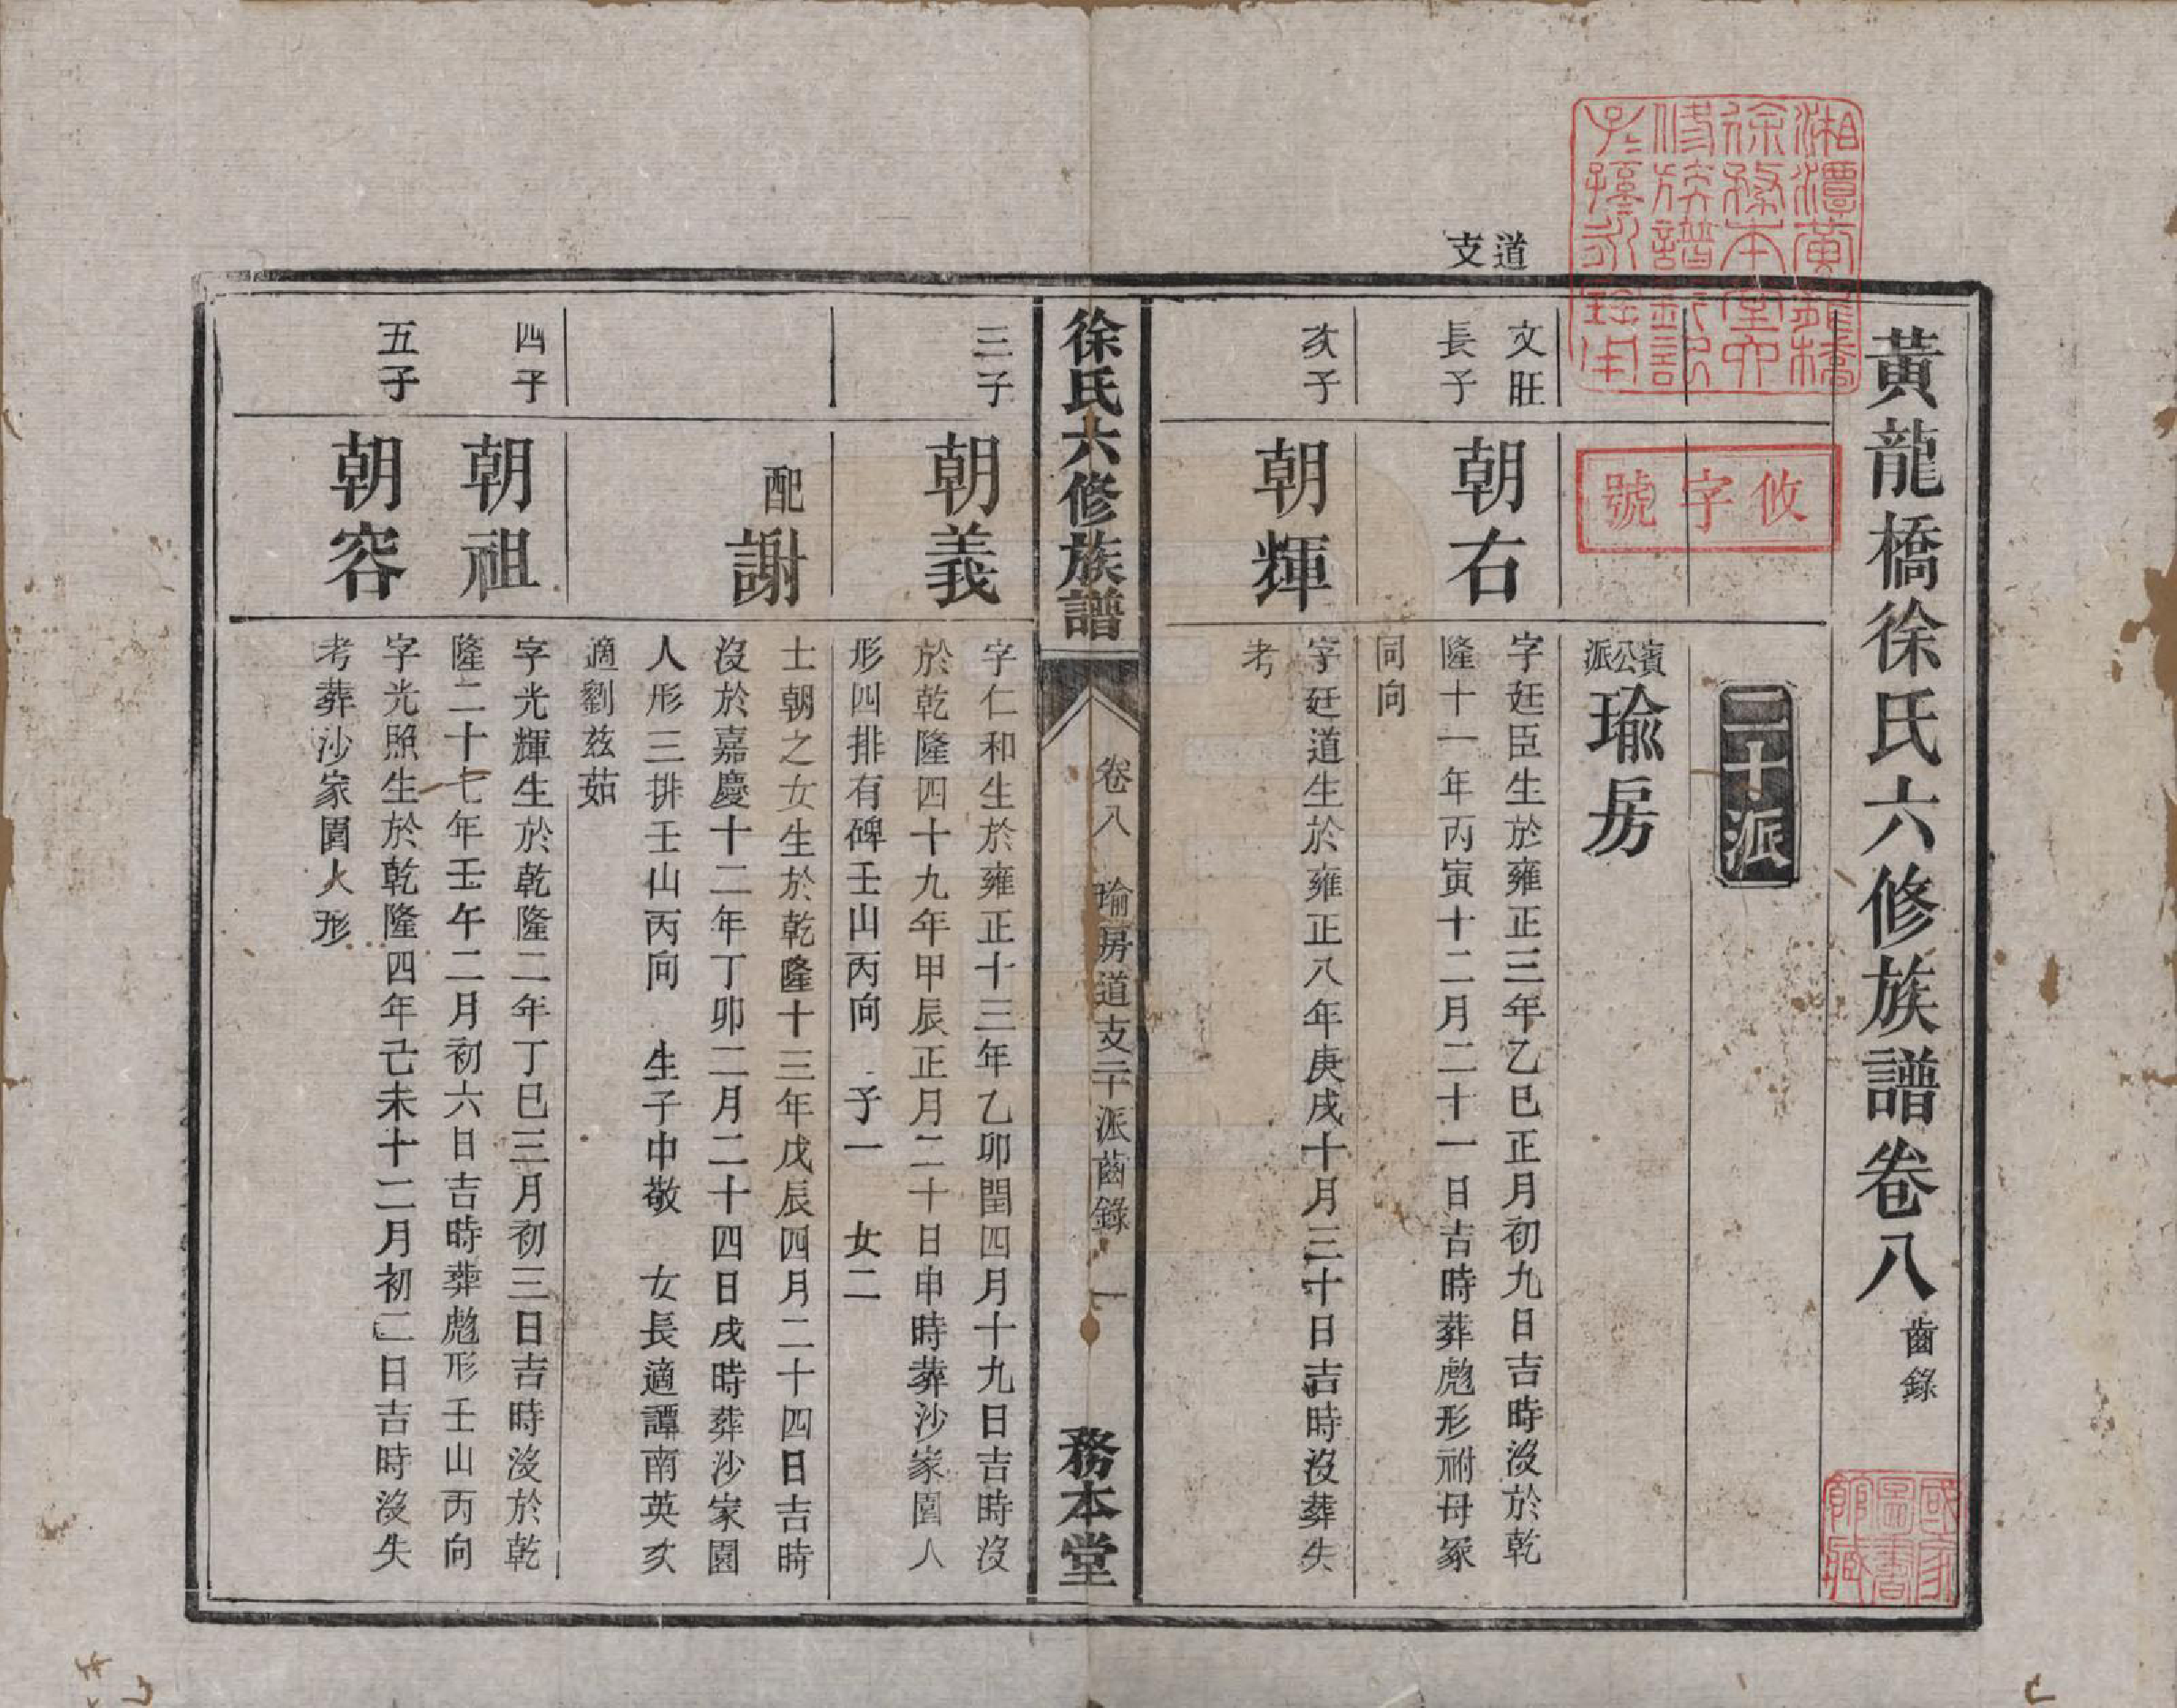 黃龍橋徐氏六修族譜卷八 齒錄
二十派
賓公派 瑜房
道支
文旺長子
朝右
字廷臣生於雍正三年乙巳正月初九日吉時沒於乾
隆十一年丙寅十二月二十一日吉時葬彪形祔母冢
同向
次子
朝輝
字廷道生於雍正八年庚戌十月三十日吉時沒葬失
考
徐氏六修族譜 卷八 瑜房道支二十派齒錄 一 務本堂
三子
朝義
字仁和生於雍正十三年乙卯閏四月十九日吉時沒
於乾隆四十九年甲辰正月二十日申時葬沙家園人
形四排有碑壬山丙向 子一 女二
配謝
士朝之女生於乾隆十三年戊辰四月二十四日吉時
沒於嘉慶十二年丁卯二月二十四日戌時葬沙家園
人形三排壬山丙向 生子中敬 女長適譚南英次
適劉茲茹
四子
朝祖
字光輝生於乾隆二年丁巳三月初三日吉時沒於乾
隆二十七年壬午二月初六日吉時葬彪形壬山丙向
五子
朝容
字光照生於乾隆四年己未十二月初二日吉時沒失
考葬沙家園人形
湘潭黃龍橋
徐務本堂六
修族譜鈐記
子孫永珍用
攸字號
國家圖書館藏